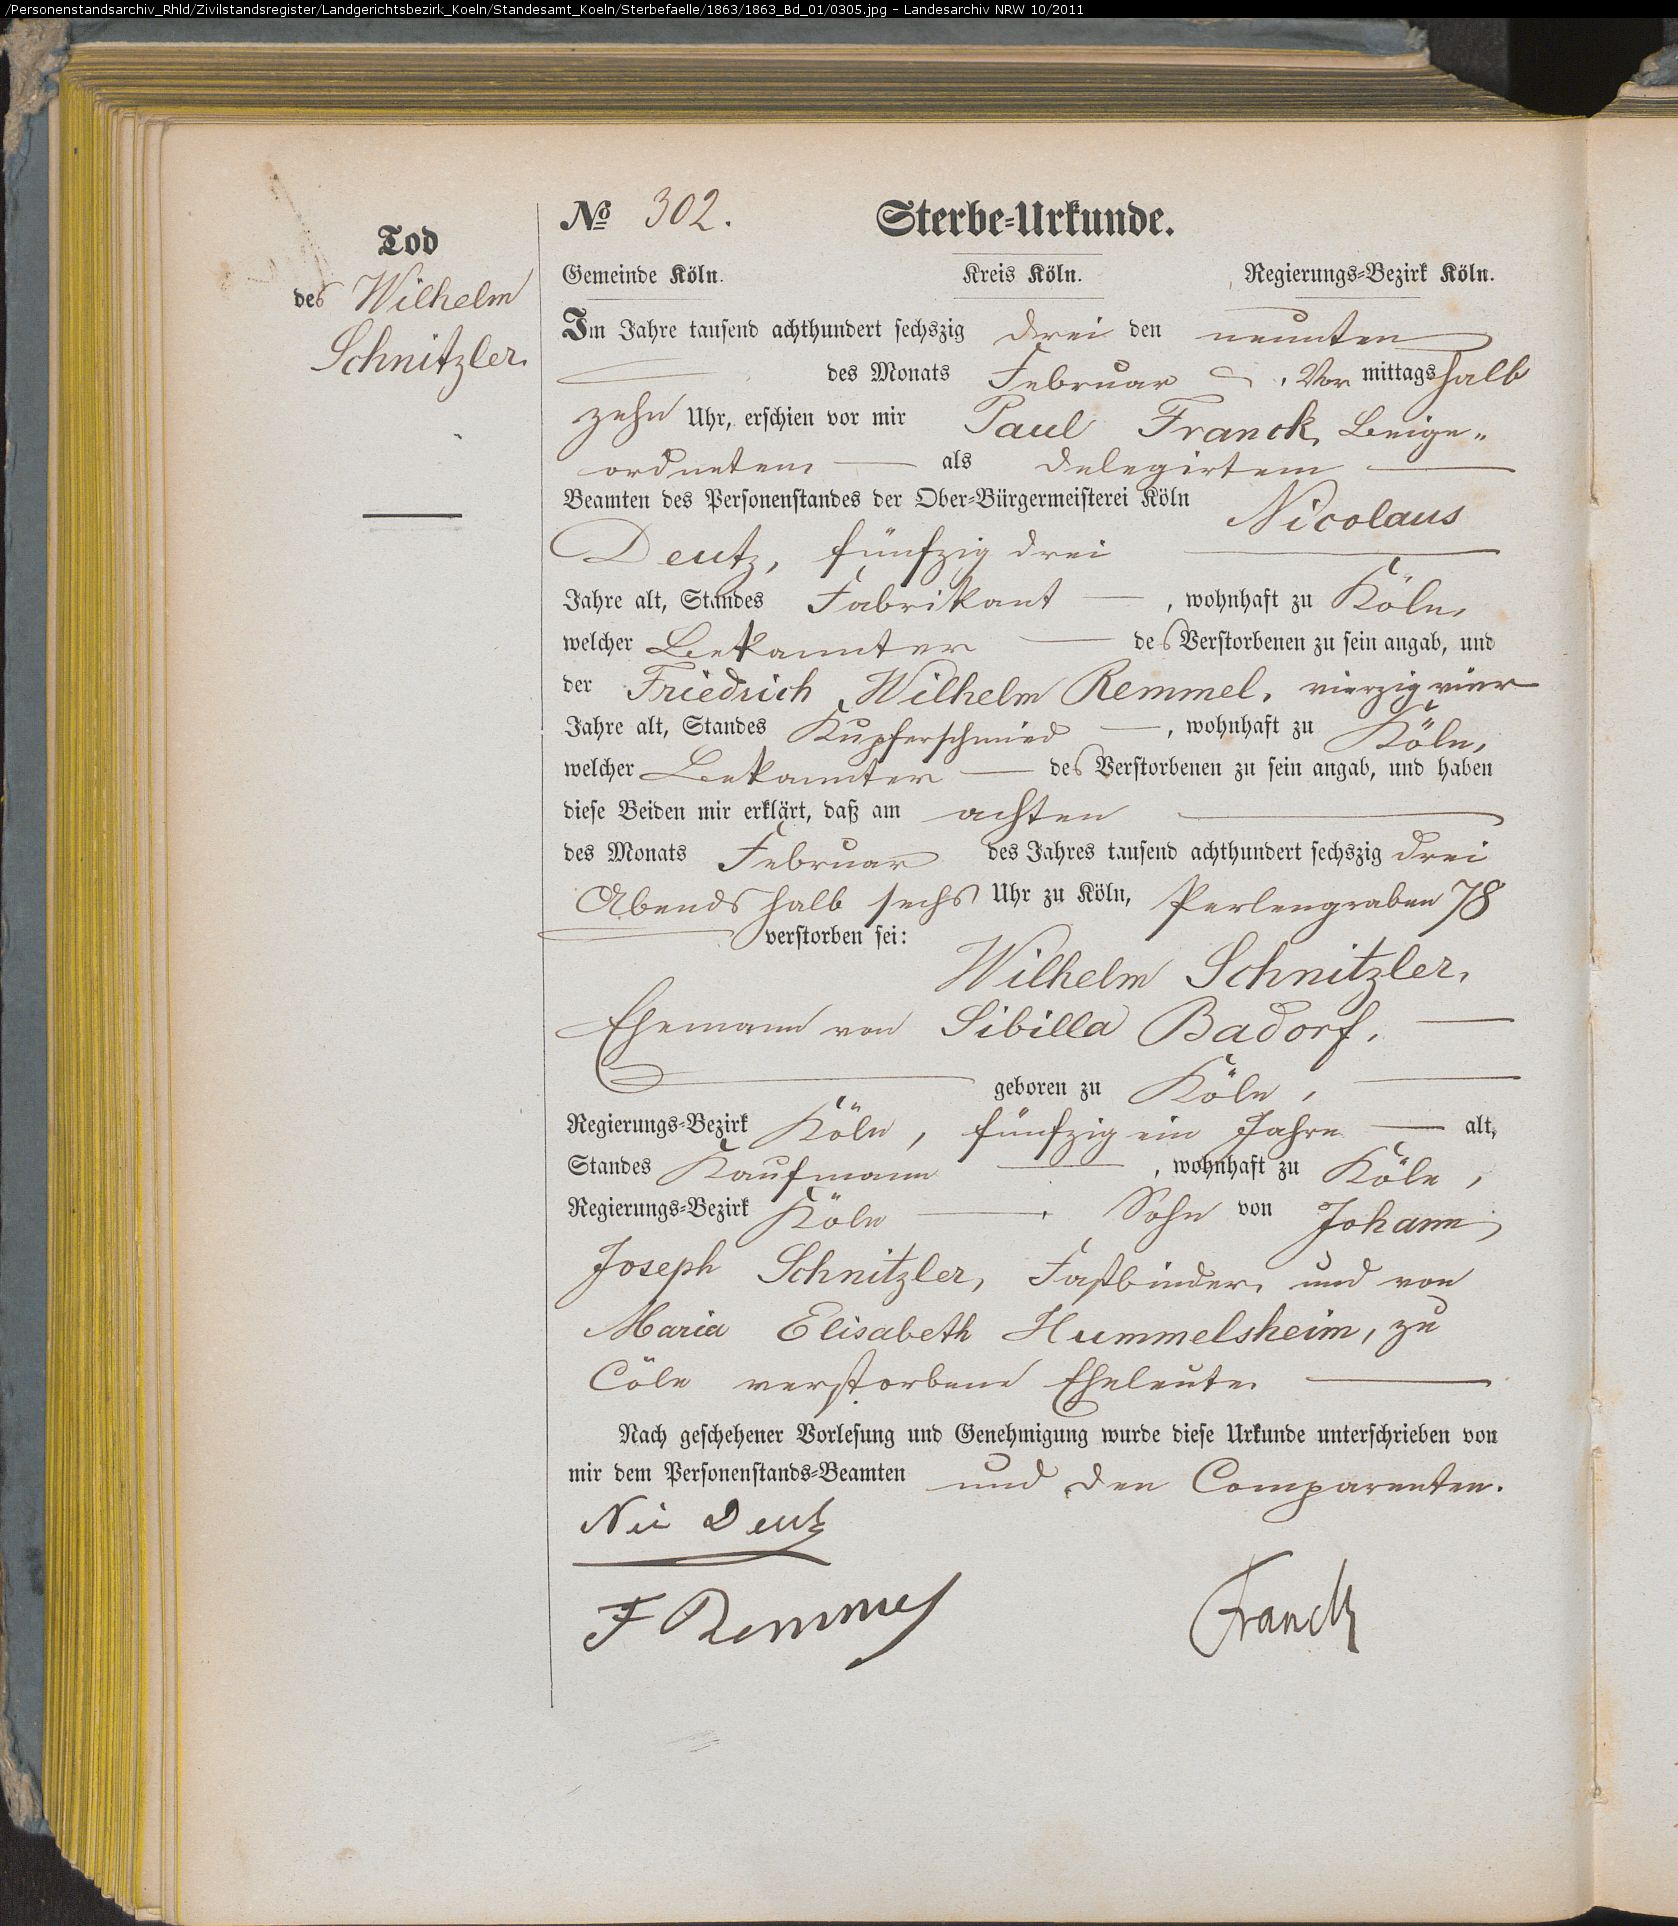 /Personenstandsarchiv_Rhld/Zivilstandsregister/Landgerichtsbezirk_Koeln/Standesamt_Koeln/Sterbefaelle/1863/1863_Bd_01/0305.jpg - Landesarchiv NRW 10/2011
Tod
des Wilhelm
Schnitzler.
No 302. Sterbe-Urkunde.
Gemeinde Köln. Kreis Köln. Regierungs-Bezirk Köln.
Im Jahre tausend achthundert sechszig drei den neunten
des Monats Februar, Vor mittags halb
zehn Uhr, erschien vor mir Paul Franck, Beige-
ordneten als delegirtem
Beamten des Personenstandes der Ober-Bürgermeisterei Köln Nicolaus
Deutz, fünfzig drei
Jahre alt, Standes Fabrikant, wohnhaft zu Köln,
welcher Bekannter des Verstorbenen zu sein angab, und
der Friedrich Wilhelm Remmel, vierzig vier
Jahre alt, Standes Kupferschmied, wohnhaft zu Köln,
welcher Bekannter des Verstorbenen zu sein angab, und haben
diese Beiden mir erklärt, daß am achten
des Monats Februar des Jahres tausend achthundert sechszig drei
Abends halb sechs Uhr zu Köln, Perlengraben 78
verstorben sei:
Wilhelm Schnitzler,
Ehemann von Sibilla Badorf,
geboren zu Köln,
Regierungs-Bezirk Köln, fünfzig ein Jahre alt,
Standes Kaufmann, wohnhaft zu Köln,
Regierungs-Bezirk Köln. Sohn von Johann
Joseph Schnitzler, Faßbinder, und von
Maria Elisabeth Hummelsheim, zu
Cöln verstorbene Eheleute.
Nach geschehener Vorlesung und Genehmigung wurde diese Urkunde unterschrieben von
mir dem Personenstands-Beamten und den Comparenten.
Nic Deutz
F Remmel
Franck